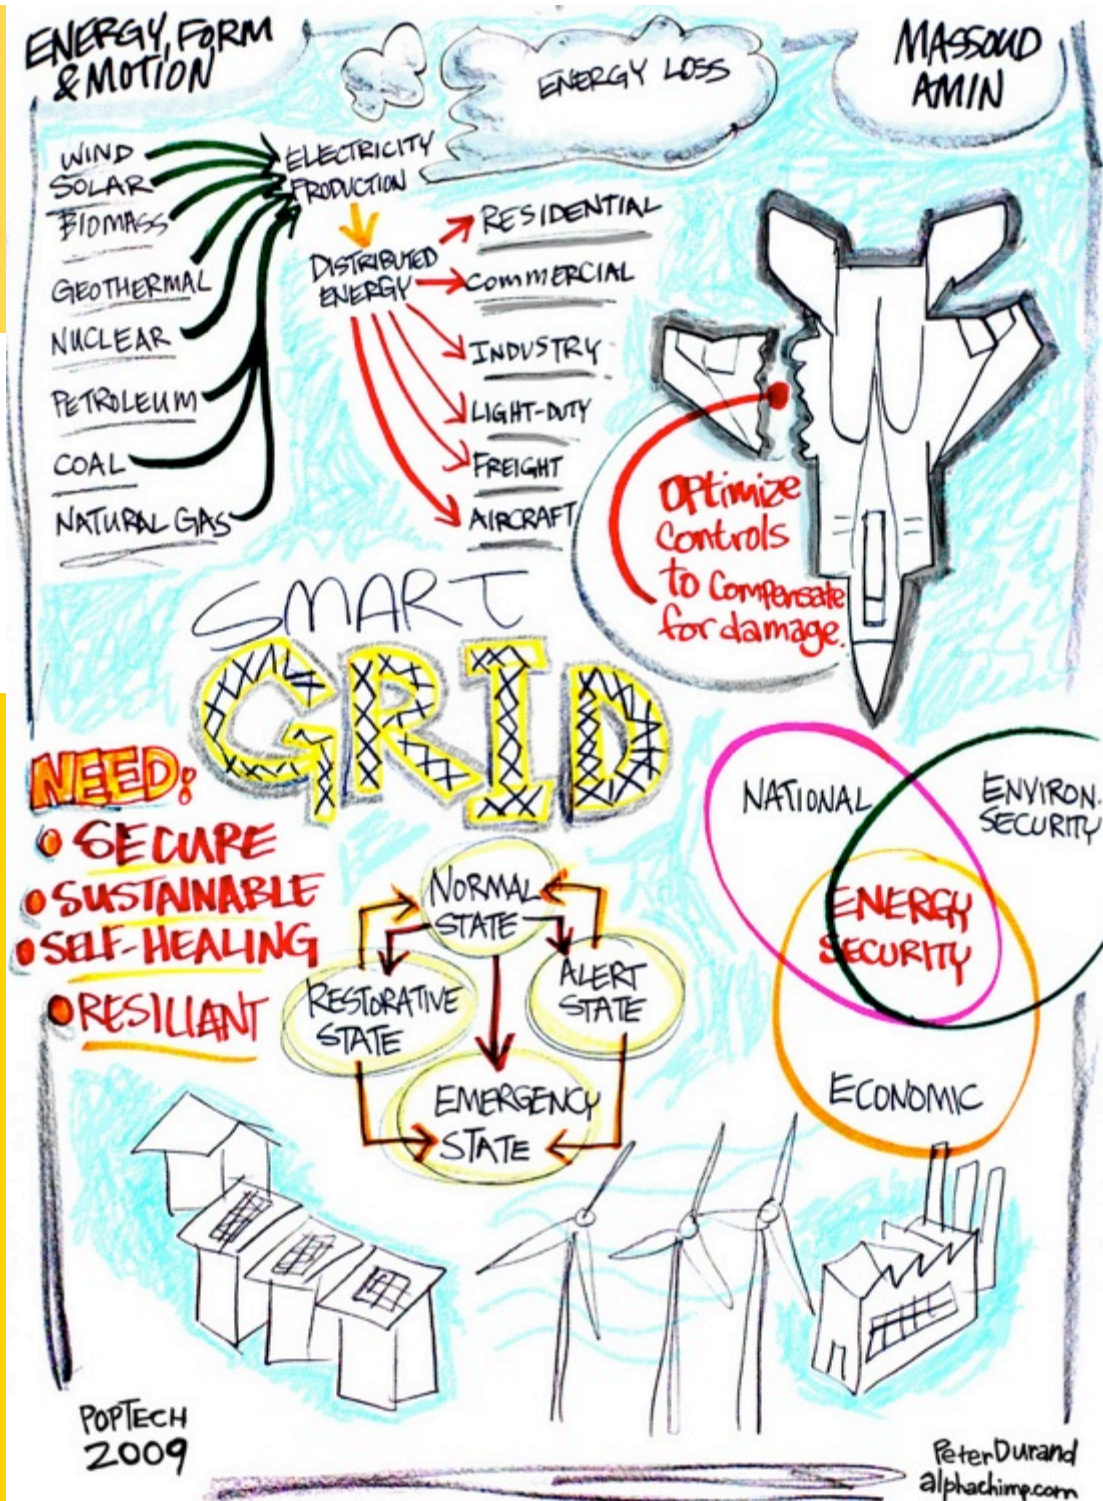 ENERGY, FORM
& MOTION
ENERGY LOSS
MASSOUD
AMIN
WIND
SOLAR
BIOMASS
GEOTHERMAL
NUCLEAR
PETROLEUM
COAL
NATURAL GAS
ELECTRICITY
PRODUCTION
DISTRIBUTED
ENERGY
RESIDENTIAL
COMMERCIAL
INDUSTRY
LIGHT-DUTY
FREIGHT
AIRCRAFT
OPtimize
Controls
to Compensate
for damage.
SMART
GRID
NEED:
SECURE
SUSTAINABLE
SELF-HEALING
RESILIANT
NORMAL
STATE
RESTORATIVE
STATE
ALERT
STATE
EMERGENCY
STATE
NATIONAL
ENVIRON.
SECURITY
ENERGY
SECURITY
ECONOMIC
POPTECH
2009
Peter Durand
alphachimp.com